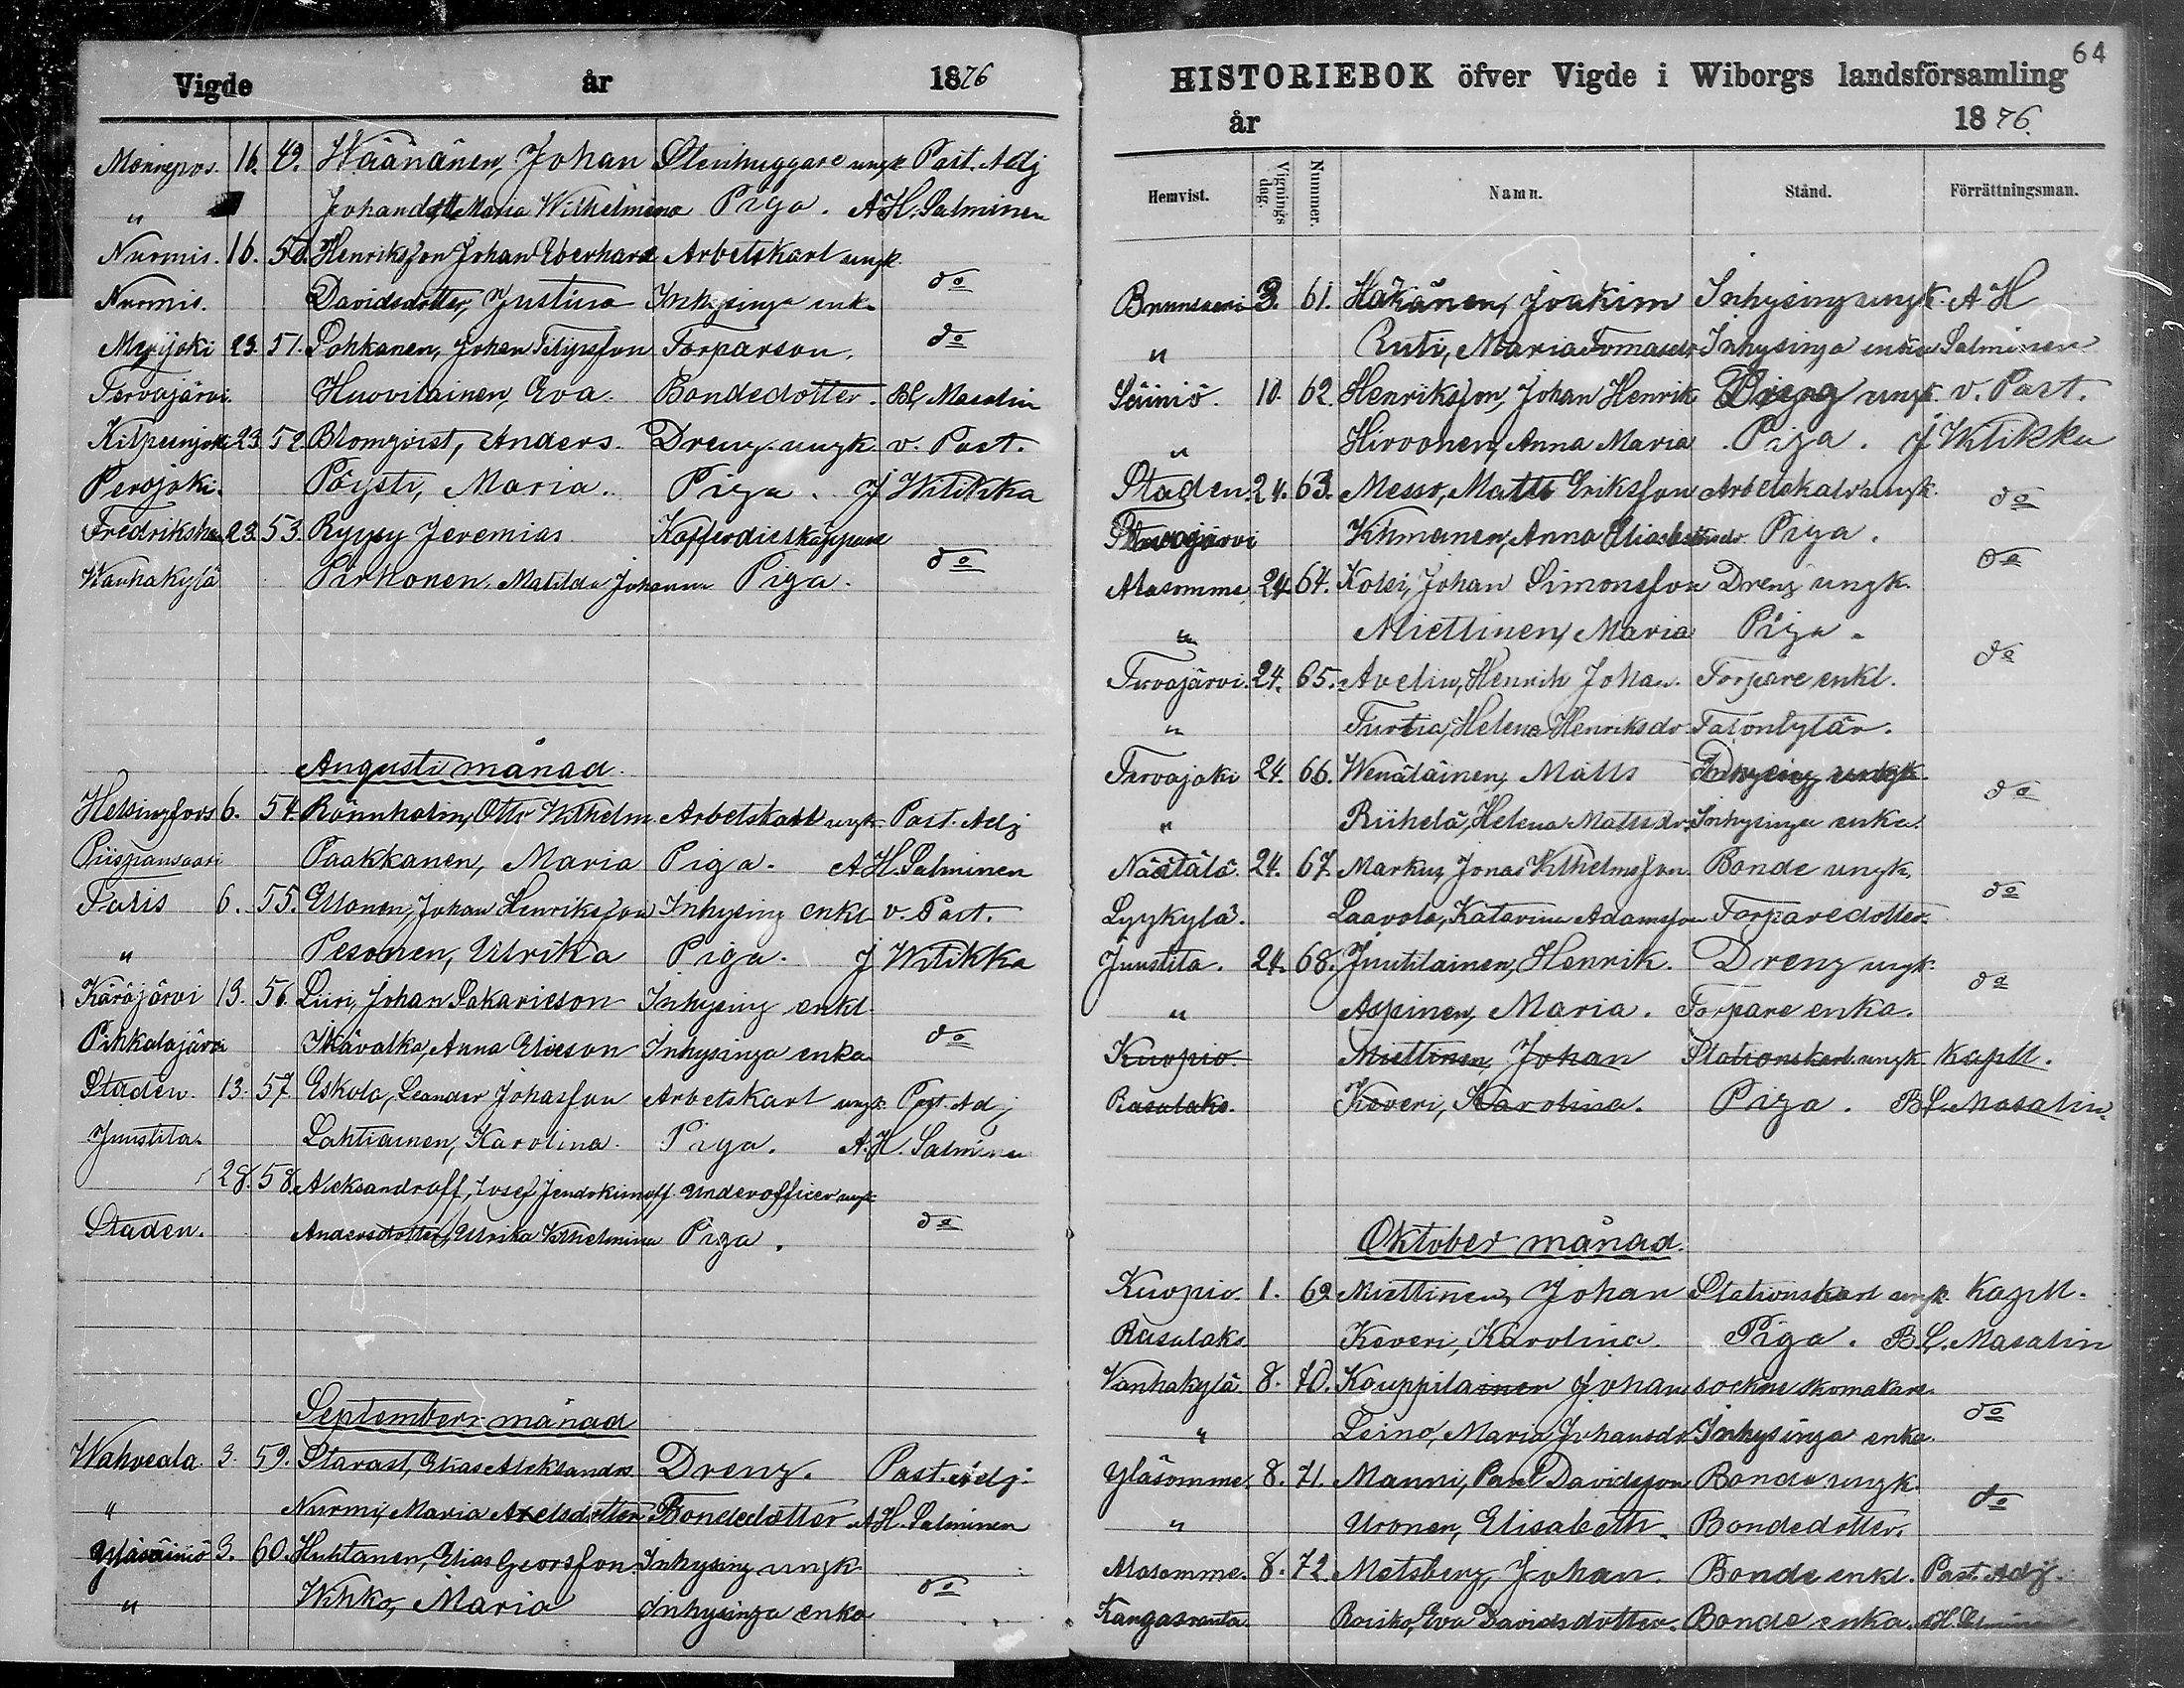 Vigde år 1876
Monrepos. 16. 49. Wäänänen, Johan Stenhuggare ungk. Past. Adj
" Johansdotter Maria Wilhelmina Piga. A H. Salminen
Nurmis. 16. 50. Henriksson Johan Eberhard Arbetskarl ungk.
Nurmis. Davidsdotter, Justina Inhysinge enk. do
23. 51. Pohkanen, Johan Torparson. do
Tervajärvi. Huovilainen, Eva. Bondedotter. BL Masalin
23. 52. Blomqvist, Anders. Dreng ungk. v. Past.
Perojoki. Pöysti, Maria. Piga. J Witikka
23. 53. Ryysy Jeremias
Wanhakylä Pirhonen Matilda Johanna Piga. do
Augusti månad.
Helsingfors 6. 54. Rönnholm, Otto Wilhelm Arbetskarl ungk. Past. Adj
Piispansaari Paakkanen, Maria Piga. A H. Salminen
6. 55. Ellonen, Johan Henriksson Inhysing enkl. v. Past.
" Pesonen, Ulrika Piga. J Witikka
Käräjärvi 13. 56. Liiri, Johan Sakarieson Inhysing enkl.
Pihkalajärvi Ikävalka, Anna Elieson Inhysinga enka do
Staden. 13. 57 Eskola, Leander Johansson Arbetskarl ungk. Past. Adj
Juustila. Lahtiainen, Karolina. Piga. A. H. Salminen
28. 58. Aleksandroff, Josef underofficer ungk
Staden. Andersdotter, Ulrika Wilhelmina Piga. do
September månad
Wahveala. 3. 59. Starast, Elias Aleksandrs Dreng. Past. Adj.
" Nurmi, Maria Axelsdotter Bondedotter A H. Salminen
Yläsäiniö 3. 60. Huhtanen, Elias Georsson Inhysing ungk.
" Wihko, Maria Inhysinga enka do
64
HISTORIEBOK öfver Vigde i Wiborgs landsförsamling
år 1876.
Hemvist. Vignings dag. Nummer. Namn. Stånd. Förrättningsman.
3. 61. Häkänen, Joakim Inhysing ungk. A H
" Ruti, Maria Tomasdr Inhysinga enka Salminen
Säiniö. 10. 62. Henriksson, Johan Henrik Dreng ungk. v. Past.
" Hirvonen, Anna Maria Piga. J Witikka
Staden. 24. 63. Messo, Matts Eriksson Arbetskarl ungk. do
Kihmanen, Anna Piga.
Alasomme 24. 64. Kolsi, Johan Simonsson Dreng ungk. do
" Miettinen, Maria Piga.
Tervajärvi. 24. 65. Avelin, Henrik Johan. Torpare enkl. do
" Turtia, Helena Henriksdr Talontytär.
Tervajoki 24. 66. Wenäläinen, Matts Inhysing ungk. do
" Riihelä, Helena Mattsdr. Inhysinga enka.
Näätälä. 24. 67. Markus, Jonas Wilhelmsson Bonde ungk. do
Lyykylä. Laavola, Katarina Adamsson Torparedotter.
Juustila. 24. 68. Juutilainen, Henrik. Dreng ungk. do
" Aspinen, Maria. Torpare enka.
Kuopio. Miettinen, Johan Stationskarl ungk. Kapll.
Rasalaks. Keveri, Karolina. Piga. BL. Masalin.
Oktober månad.
Kuopio. 1. 69 Miettinen, Johan Stationskarl ungk. Kapll.
Rasalaks. Keveri, Karolina. Piga. BL. Masalin
Vanhakylä. 8. 70. Kauppilainen Johan sockne skomakare
" Leino, Maria Johansdr Inhysinga enka. do
Yläsomme. 8. 71. Manni, Paul Davidsson Bonde ungk.
" Uronen, Elisabeth. Bondedotter. do
Alasomme. 8. 72. Metsberg, Johan Bonde enkl. Past. Adj.
Kangasranta. Eva Davidsdotter. Bonde enka. A H. Salminen